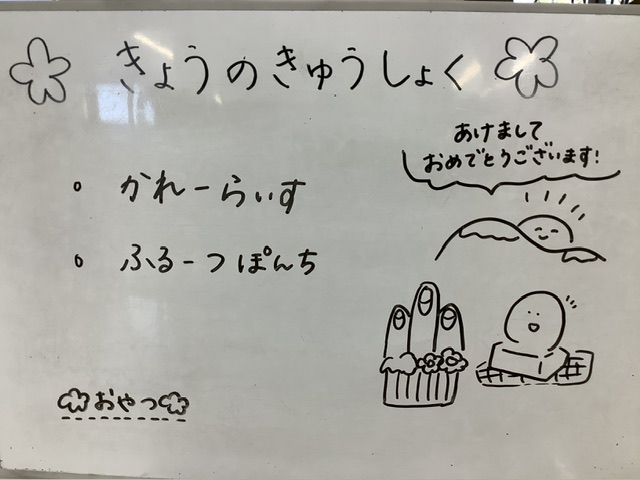 きょうのきゅうしょく
あけまして
おめでとうございます!
・ かれーらいす
・ ふるーつぽんち
おやつ